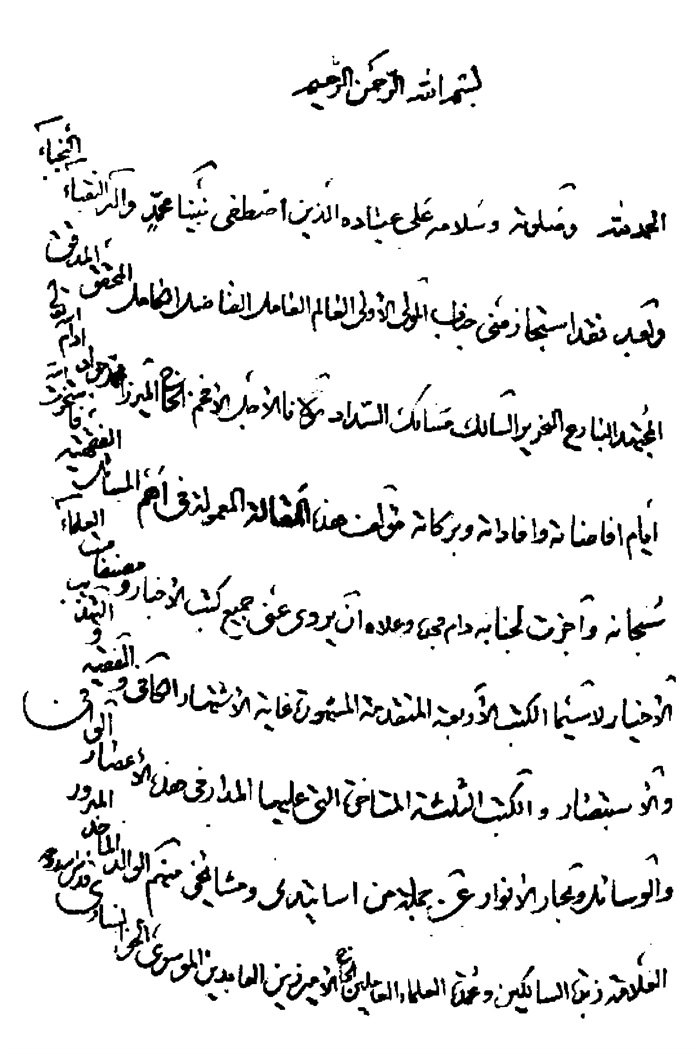 بسم الله الرحمن الرحيم
الحمد لله وصلوته وسلامه على عباده الذين اصطفى نبينا محمد وآله النقباء النجباء
وبعد فقد استجاز مني جناب المولى الأولى العالم العامل الفاضل الكامل المحقق المدقق
المجتهد البارع النحرير السالك مسالك السداد مولانا الأجل الأفخم الحاج الميرزا محمد جواد ادام الله تعالى
أيام افاضاته وافاداته وبركاته مؤلف هذه المقالة المعمولة في أهم المسائل الفقهية فاستخرت الله
سبحانه وأجزت لجنابه دام مجده وعلاه أن يروي عني جميع كتب الأخبار ومصنفات العلماء
الأخيار لاسيما الكتب الأربعة المتقدمة المشهورة غاية الاشتهار الكافي والفقيه والتهذيب
والاستبصار والكتب الثلثة المتأخرة التي عليها المدار في هذه الأعصار الوافي
والوسائل وبحار الأنوار عن جملة من اساتيدي ومشائخي منهم الوالد الماجد المبرور
العلامة زبدة السالكين وعمدة العلماء العاملين الحاج الأمير زين العابدين الموسوي الخوانساري قدس سره